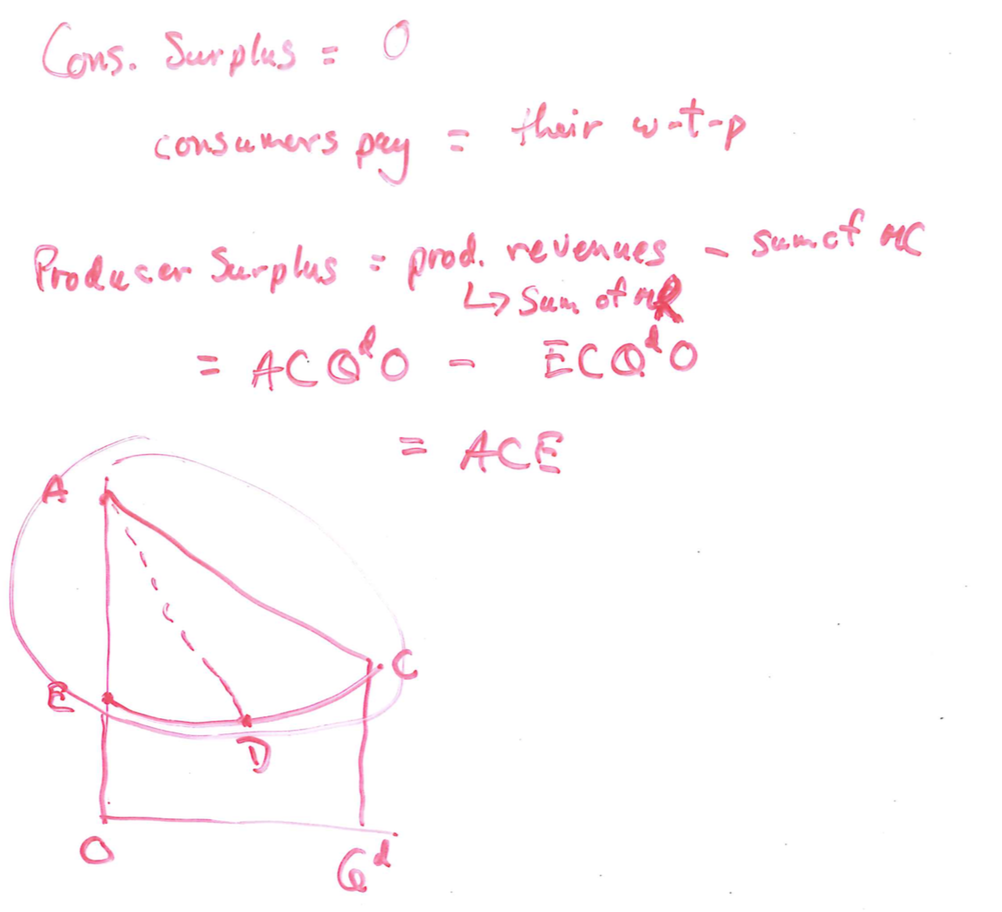 Cons. Surplus = 0
consumers pay = their w-t-p
Producer Surplus = prod. revenues - sum of MC
↳ Sum of MR
= ACQᵈO - ECQᵈO
= ACE
A
C
E
D
O
Qᵈ